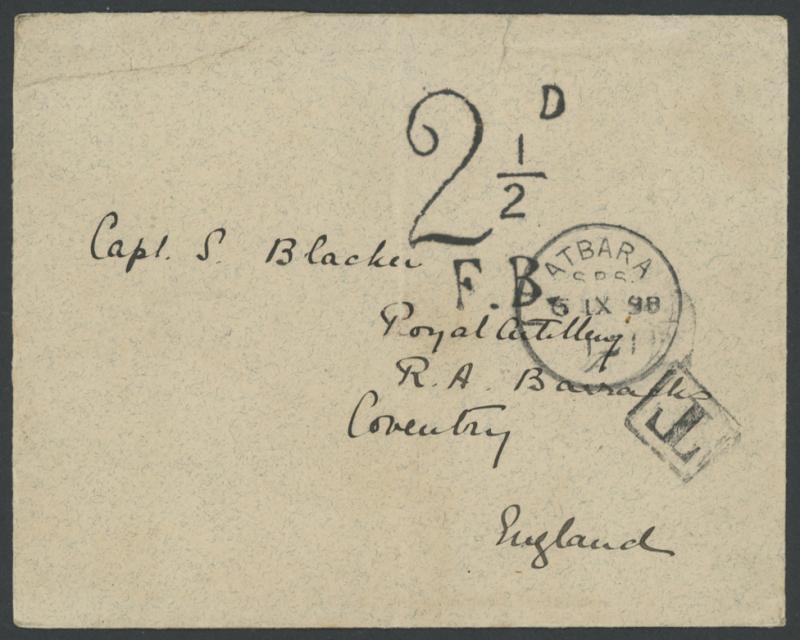 2 1/2 D
F.B.
ATBARA
S.P.S.
5 IX 98
Capt. S. Blacker
Royal Artillery
R. A. Barracks
Coventry
England
T